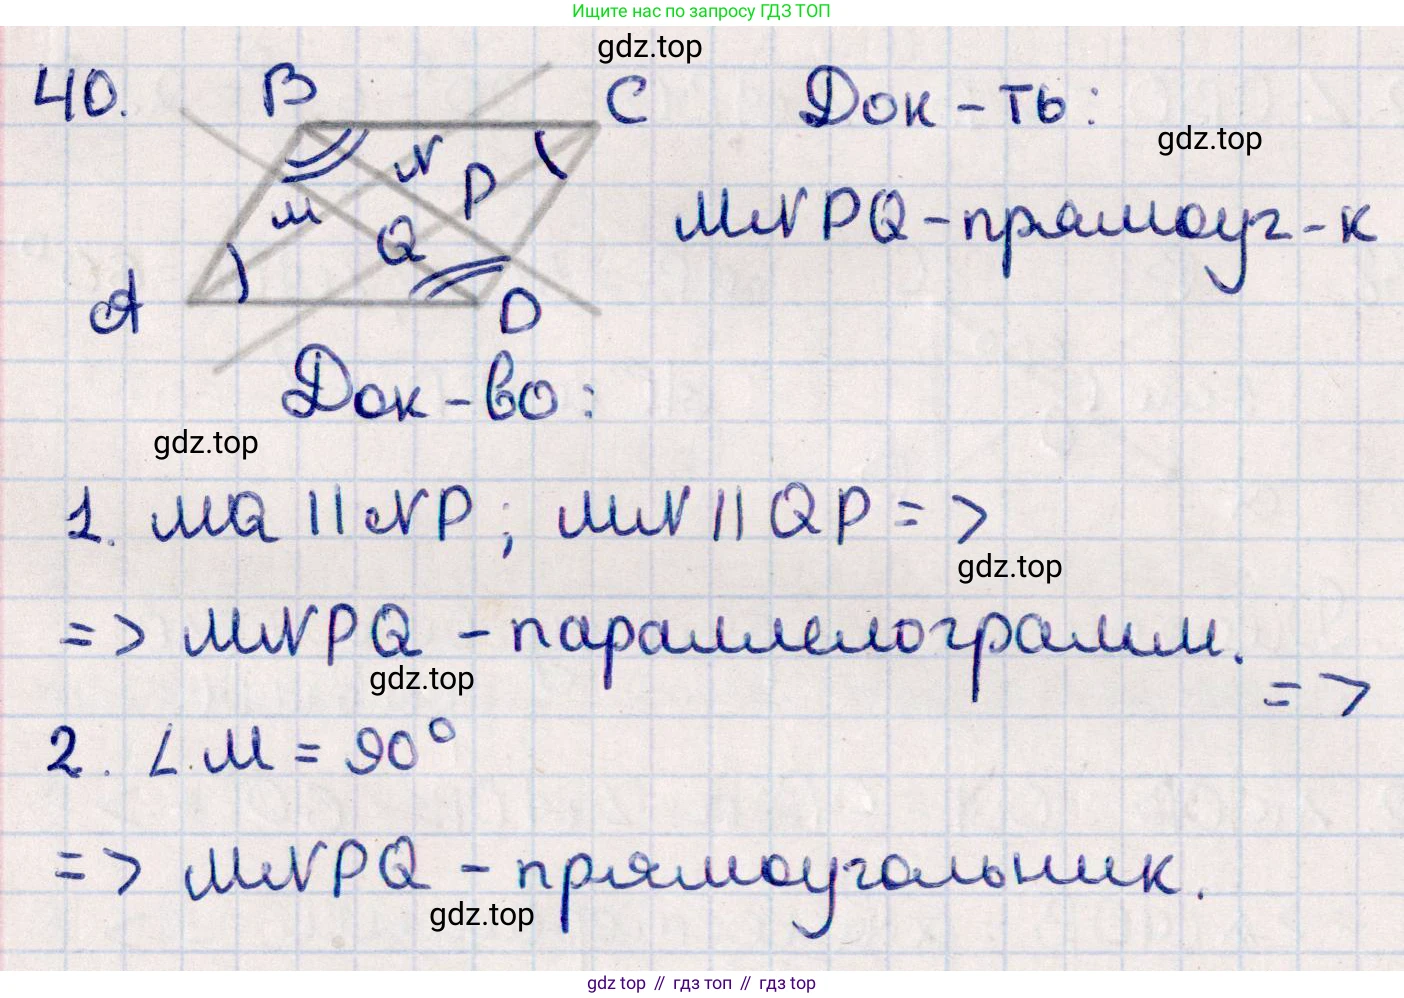 Ищите нас по запросу ГДЗ ТОП
gdz.top
40. B C Док-ть:
gdz.top
N P
M Q MNPQ-прямоуг-к
A D
Док-во:
gdz.top
1. MQ || NP; MN || QP =>
gdz.top
=> MNPQ - параллелограмм.
gdz.top
=>
2. ∠M = 90°
=> MNPQ - прямоугольник.
gdz.top
gdz top // гдз топ // гдз top